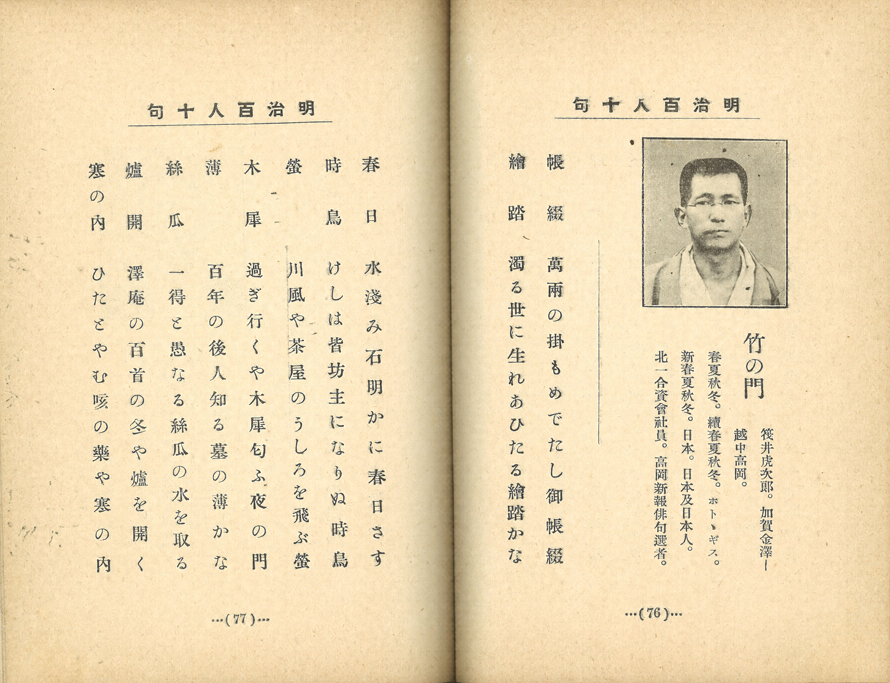 明治百人十句
竹の門
筏井虎次郎。加賀金澤—
越中高岡。
春夏秋冬。續春夏秋冬。ホトヽギス。
新春夏秋冬。日本。日本及日本人。
北一合資會社員。高岡新報俳句選者。
帳綴　萬兩の掛もめでたし御帳綴
繪踏　濁る世に生れあひたる繪踏かな
…(76)…
明治百人十句
春日　水淺み石明かに春日さす
時鳥　けしは皆坊主になりぬ時鳥
螢　川風や茶屋のうしろを飛ぶ螢
木犀　過ぎ行くや木犀匂ふ夜の門
薄　百年の後人知る墓の薄かな
絲瓜　一得と愚なる絲瓜の水を取る
爐開　澤庵の百首の冬や爐を開く
寒の內　ひたとやむ咳の藥や寒の內
…(77)…